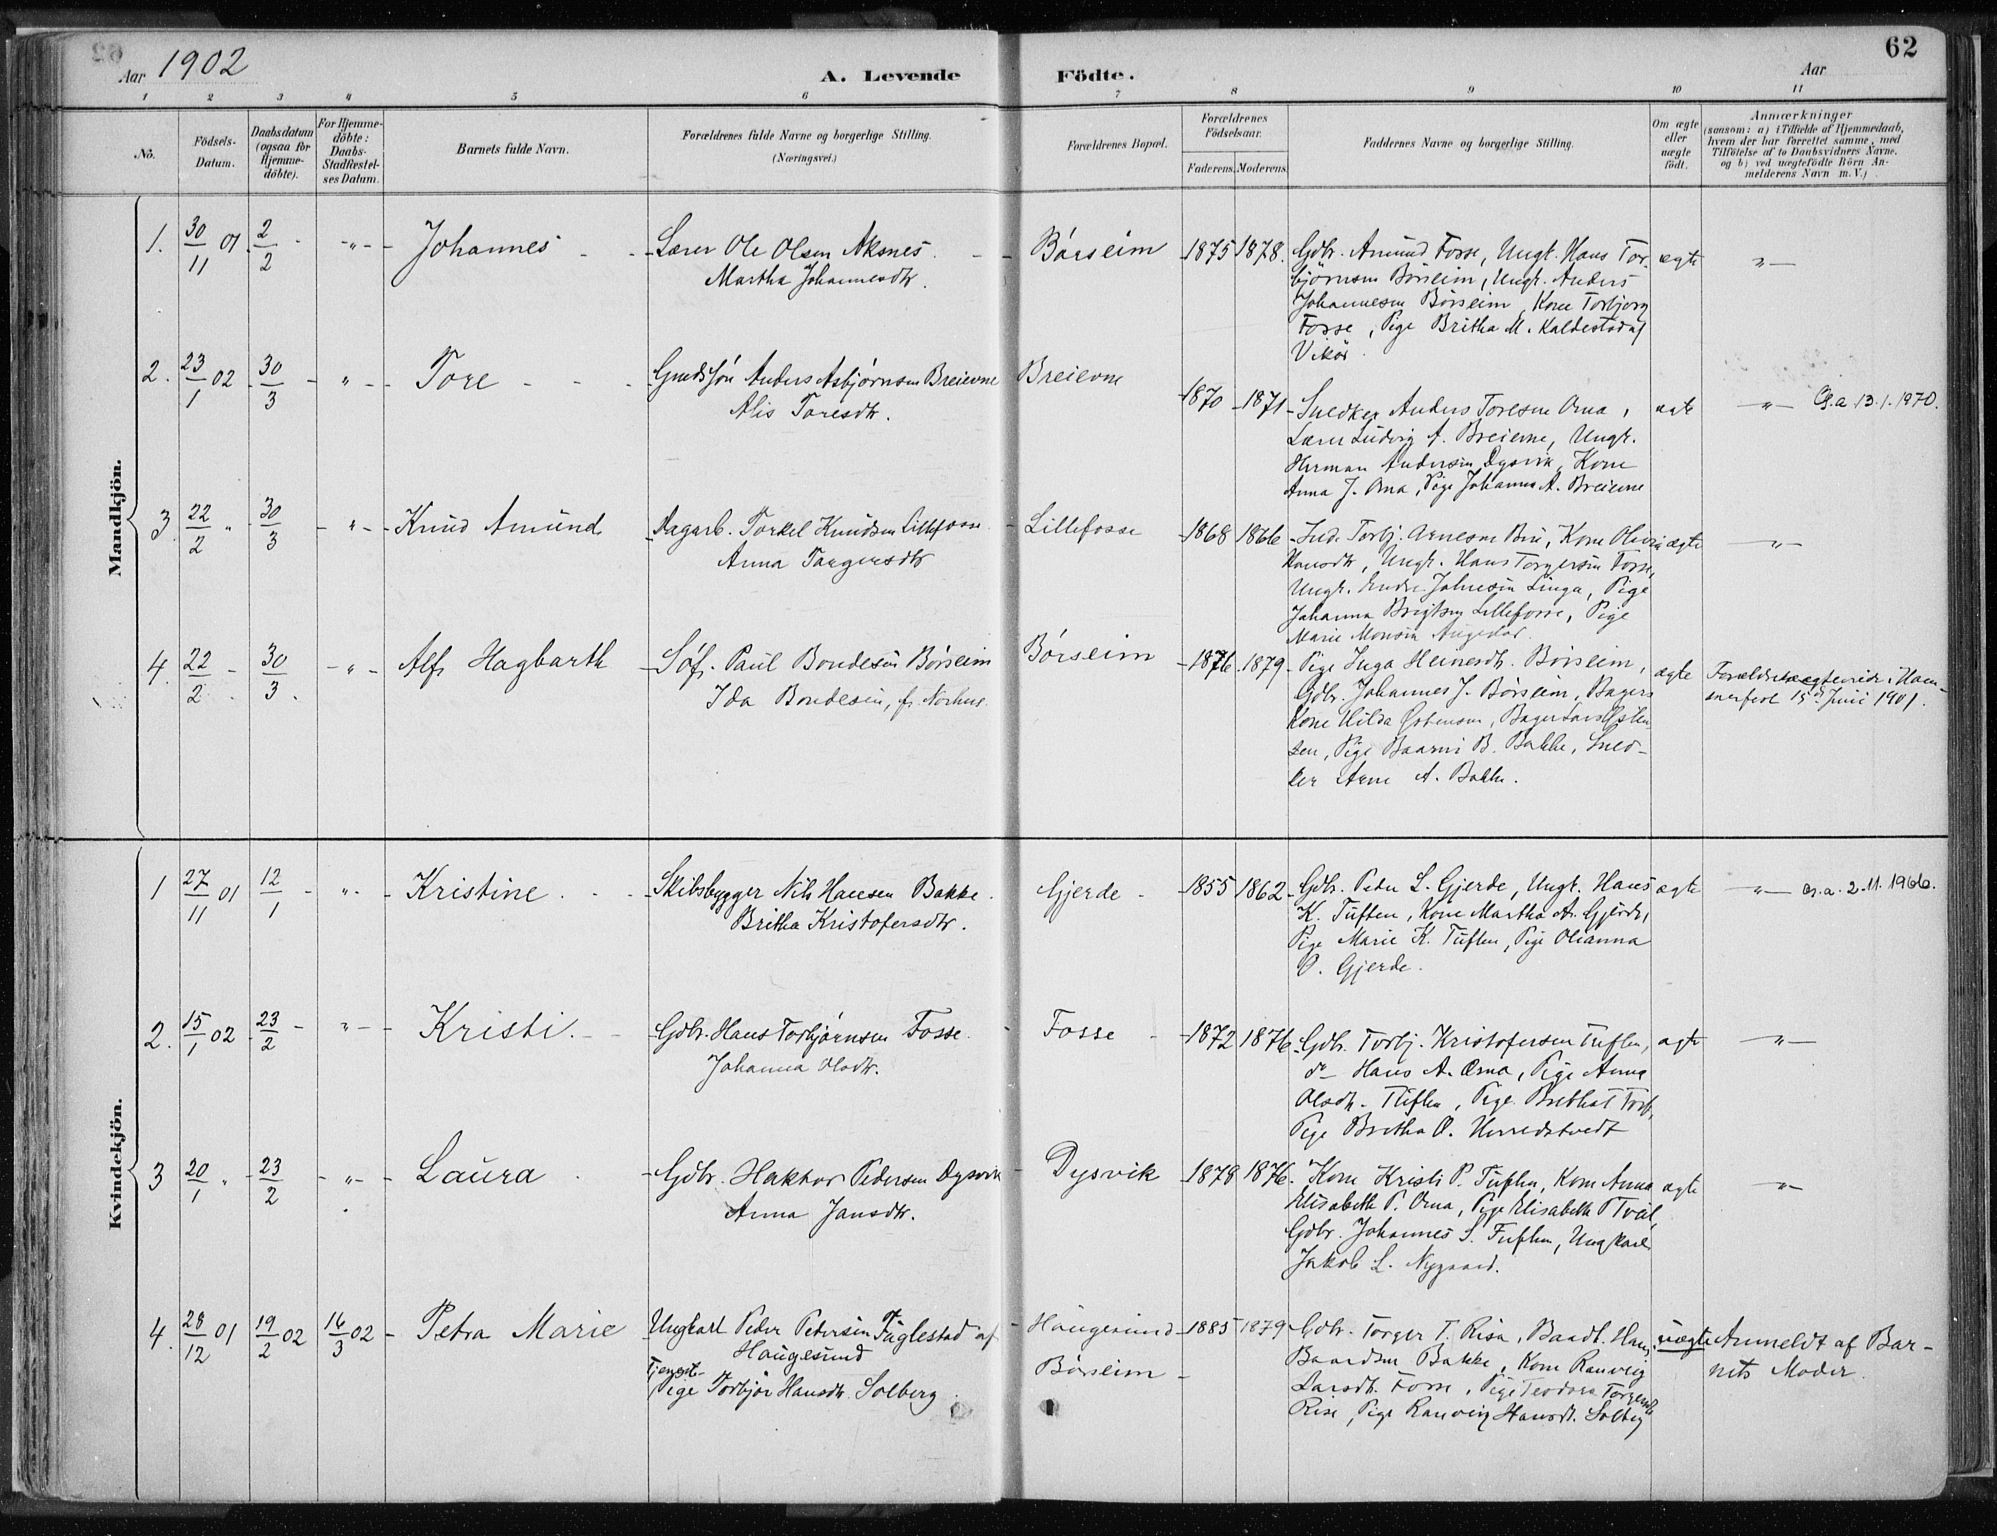 62
Aar 1902
A. Levende Födte.
Aar
1 2 3 4 5 6 7 8 9 10 11
No.
Födsels-Datum.
Daabsdatum (ogsaa for Hjemme-döbte).
For Hjemme-döbte: Daabs-Stadfæstel-ses Datum.
Barnets fulde Navn.
Forældrenes fulde Navne og borgerlige Stilling. (Næringsvei.)
Forældrenes Bopæl.
Forældrenes Födselsaar.
Faderens. Moderens.
Faddernes Navne og borgerlige Stilling.
Om ægte eller uægte födt.
Anmærkninger
(saasom: a) i Tilfælde af Hjemmedaab,
hvem der har forrettet samme, med
Tilföielse af to Daabsvidners Navne,
og b) ved uægtefödte Börn An-
melderens Navn m. V.)
Mandkjön.
1. 30/11 01 2/2 - " - Johannes - Lærer Ole Olsen Aksnes. - Børseim 1875 1878. Gdbr. Amund Fosse, Ungk. Hans Tor- ægte " -
Martha Johannesdtr.
bjørnsen Børseim, Ungk. Anders
Johannesen Børseim, Kone Torbjorg
Fosse, Pige Britha M. Kaldestad af
Vikør.
2. 23/1 02 30/3 - " - Tore - Anders Asbjørnsen Breievne Breievne
Alis Toresdtr.
1870 1871 Snedker Anders Toresen Oma, ægte - " - 13.1.1970.
Lærer Ludvig A. Breievne, Ungk.
Herman Andersen Dysvik, Kone
Anna J. Oma, Pige Johanna A. Breievne
3. 22/2 " 30/3 - " - Knud Amund Dagarb. Torkel Knudsen Lillefosse - Lillefosse 1868 1866 Torbj. Arnesen Kone ægte - " -
Anna Torgersdtr
Hansdtr, Ungk. Hans Torgersen Fosse,
Ungk. Endre Johnesen Linga, Pige
Johanna Lillefosse, Pige
Marie Monsen
4. 22/2 - 30/3 - " - Alf Hagbarth - Søf. Paul Bondesen Børseim Børseim 1876 1879 Pige Inga Børseim, ægte
Ida Bondesen, f. Norhus
Gdbr. Johannes J. Børseim, Bagers
Kone Hilda Østensen, Bager Lars Østen
sen, Pige B. Bakke, Sned-
ker Arne A. Bakke.
i Ham-
merfest 15de Juni 1901.
Kvindekjön.
1 27/11 01 12/1 - " - Kristine. - Skibsbygger Nils Hansen Bakke. Gjerde - 1855 1862 Gdbr. Peder L. Gjerde, Ungk. Hans ægte - " - 2.11.1966.
Britha Kristofersdtr.
K. Tuften, Kone Martha A. Gjerde,
Pige Marie K. Tuften, Pige Olianna
P. Gjerde.
2. 15/1 02 23/2 - " - Kristi. - Gdbr. Hans Torbjørnsen Fosse. Fosse - 1872 1876 Gdbr. Torbj. Kristofersen Tuften, ægte - " -
Johanna Olsdtr.
do Hans A. Oma, Pige Anna
Olsdtr. Tuften, Pige
Pige Britha O. Herredstvedt
3 20/1 " 23/2 - " - Laura. - Gdbr. Haktor Pedersen Dysvik - Dysvik 1878 1876. Kone Kristi P. Tuften, Kone Anna ægte - " -
Anna Jansdtr.
Elisabeth P. Oma, Pige Elisabeth
Gdbr. Johannes S. Tuften, Ungkarl
Jakob L. Nygaard.
4. 28/12 01 19/2 02 16/3 02 - Petra Marie Ungkarl Peder Pedersen Fuglestad af Haugesund 1885 1879 Gdbr. Torger T. Risa, Hans uægte Anmeldt af Bar-
Haugesund
Tjeneste-
Pige Torbjør Hansdtr. Solberg. Børseim -
Baardsen Bakke, Kone Ranveig
Larsdtr. Fosse, Pige Teodora Torgersdtr
Rise, Pige Ranveig Hansdt. Solberg
nets Moder.